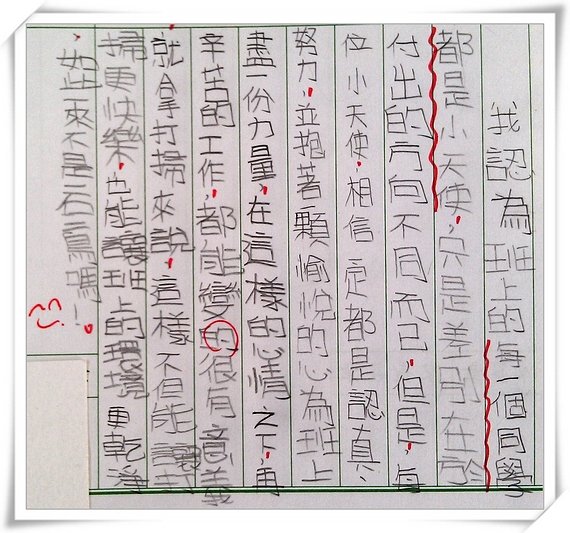 我認為班上的每一個同學
都是小天使,只是差別在於
付出的方向不同而已,但是,每
位小天使,相信一定都是認真、
努力,並抱著一顆愉悅的心為班上
盡一份力量,在這樣的心情之下,再
辛苦的工作,都能變的很有意義
就拿打掃來說,這樣不但能讓
掃更快樂,也能讓班上的環境更乾淨
如此來不是一石二鳥嗎!